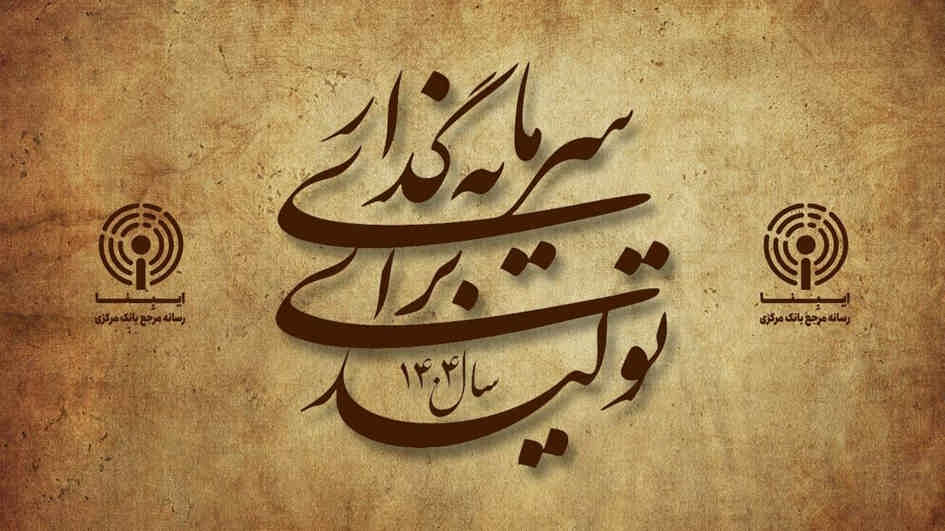 سرمایه گذاری
برای
تولید
سال ۱۴۰۴
ایبنا
رسانه مرجع بانک مرکزی
ایبنا
رسانه مرجع بانک مرکزی